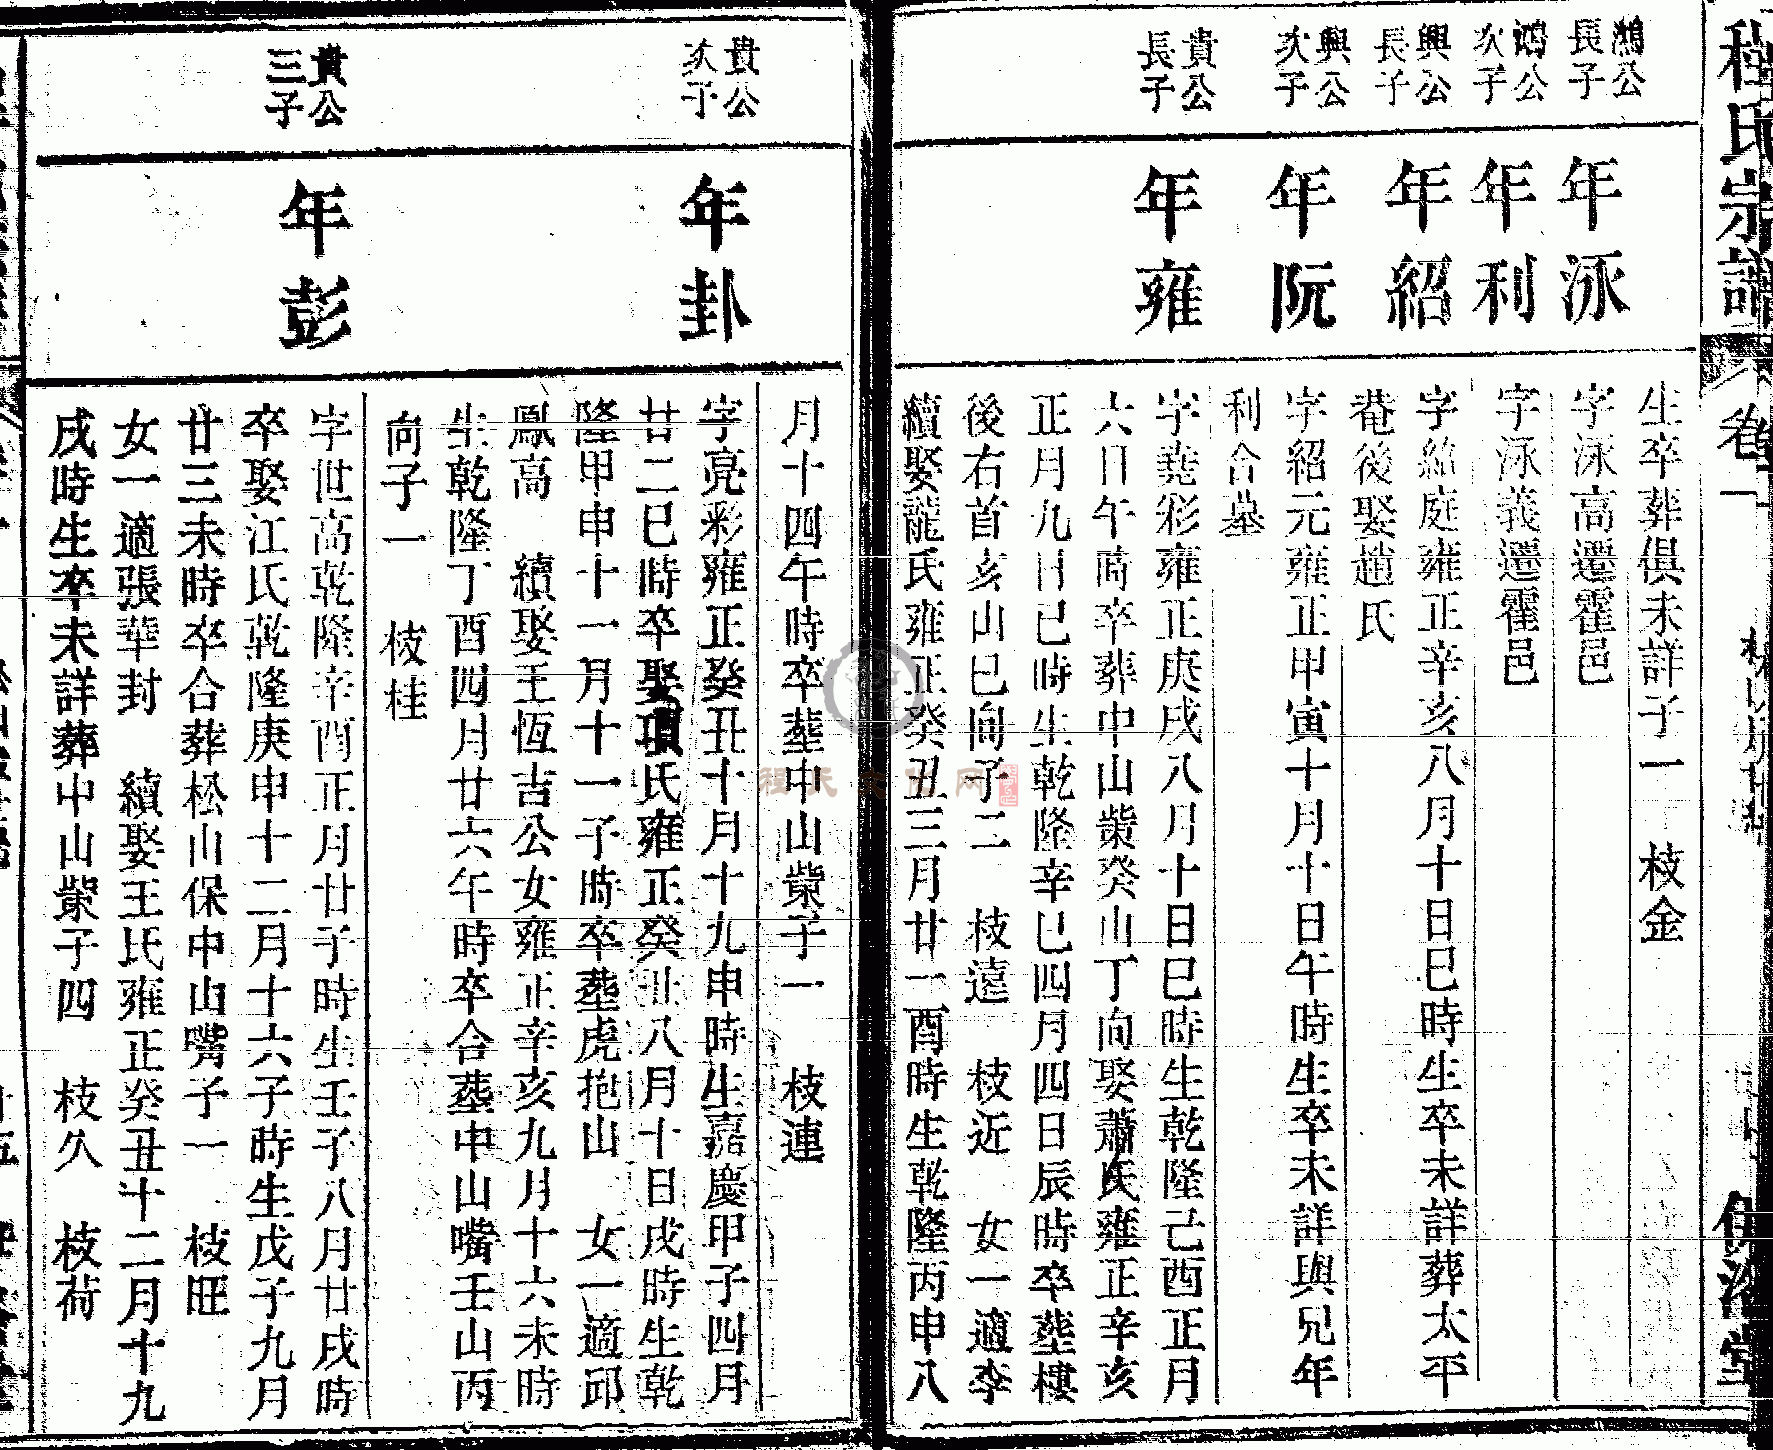 程氏宗譜
卷一
伊洛堂
生卒葬俱未詳子一　枝金
鴻公
長子
年泳
字泳高遷霍邑
鴻公
次子
年利
字泳義遷霍邑
興公
長子
年紹
字紹庭雍正辛亥八月十日巳時生卒未詳葬太平
菴後娶趙氏
興公
次子
年阮
字紹元雍正甲寅十月十日午時生卒未詳與兄年
利合墓
貴公
長子
年雍
字堯彩雍正庚戌八月十日巳時生乾隆己酉正月
六日午時卒葬中山紫癸山丁向娶蕭氏雍正辛亥
正月九日巳時生乾隆辛巳四月四日辰時卒塟樓
後右首亥山巳向子二　枝遠　枝近　女一適李
續娶龍氏雍正癸丑三月廿一酉時生乾隆丙申八
月十四午時卒塟中山紫子一　枝連
貴公
次子
年卦
字亮彩雍正癸丑十月十九申時生嘉慶甲子四月
廿二巳時卒娶項氏雍正癸丑八月十日戌時生乾
隆甲申十一月十一子時卒塟虎抱山　女一適邱
鳳高　續娶王恆吉公女雍正辛亥九月十六未時
生乾隆丁酉四月廿六午時卒合塟中山嘴壬山丙
向子一　枝桂
貴公
三子
年彭
字世高乾隆辛酉正月廿子時生壬子八月廿戌時
卒娶江氏乾隆庚申十二月十六子時生戊子九月
廿三未時卒合葬松山保中山嘴子一　枝旺
女一適張華封　續娶王氏雍正癸丑十二月十九
戌時生卒未詳葬中山紫子四　枝久　枝荷